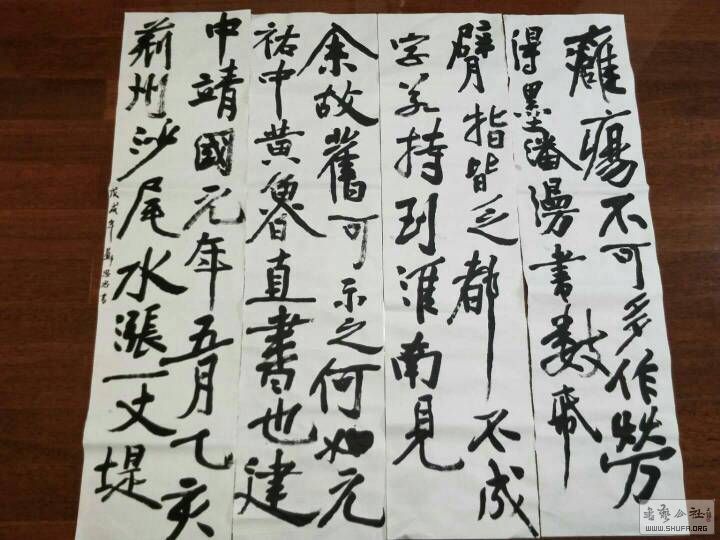 癰瘍不可多作勞
得墨瀋漫書數帋
臂指皆乏都不成
字若持到淮南見
余故舊可示之何如元
祐中黃魯直書也建
中靖國元年五月乙亥
荊州沙尾水漲一丈堤
戊戌年
书艺公社
WWW.SHUFA.ORG